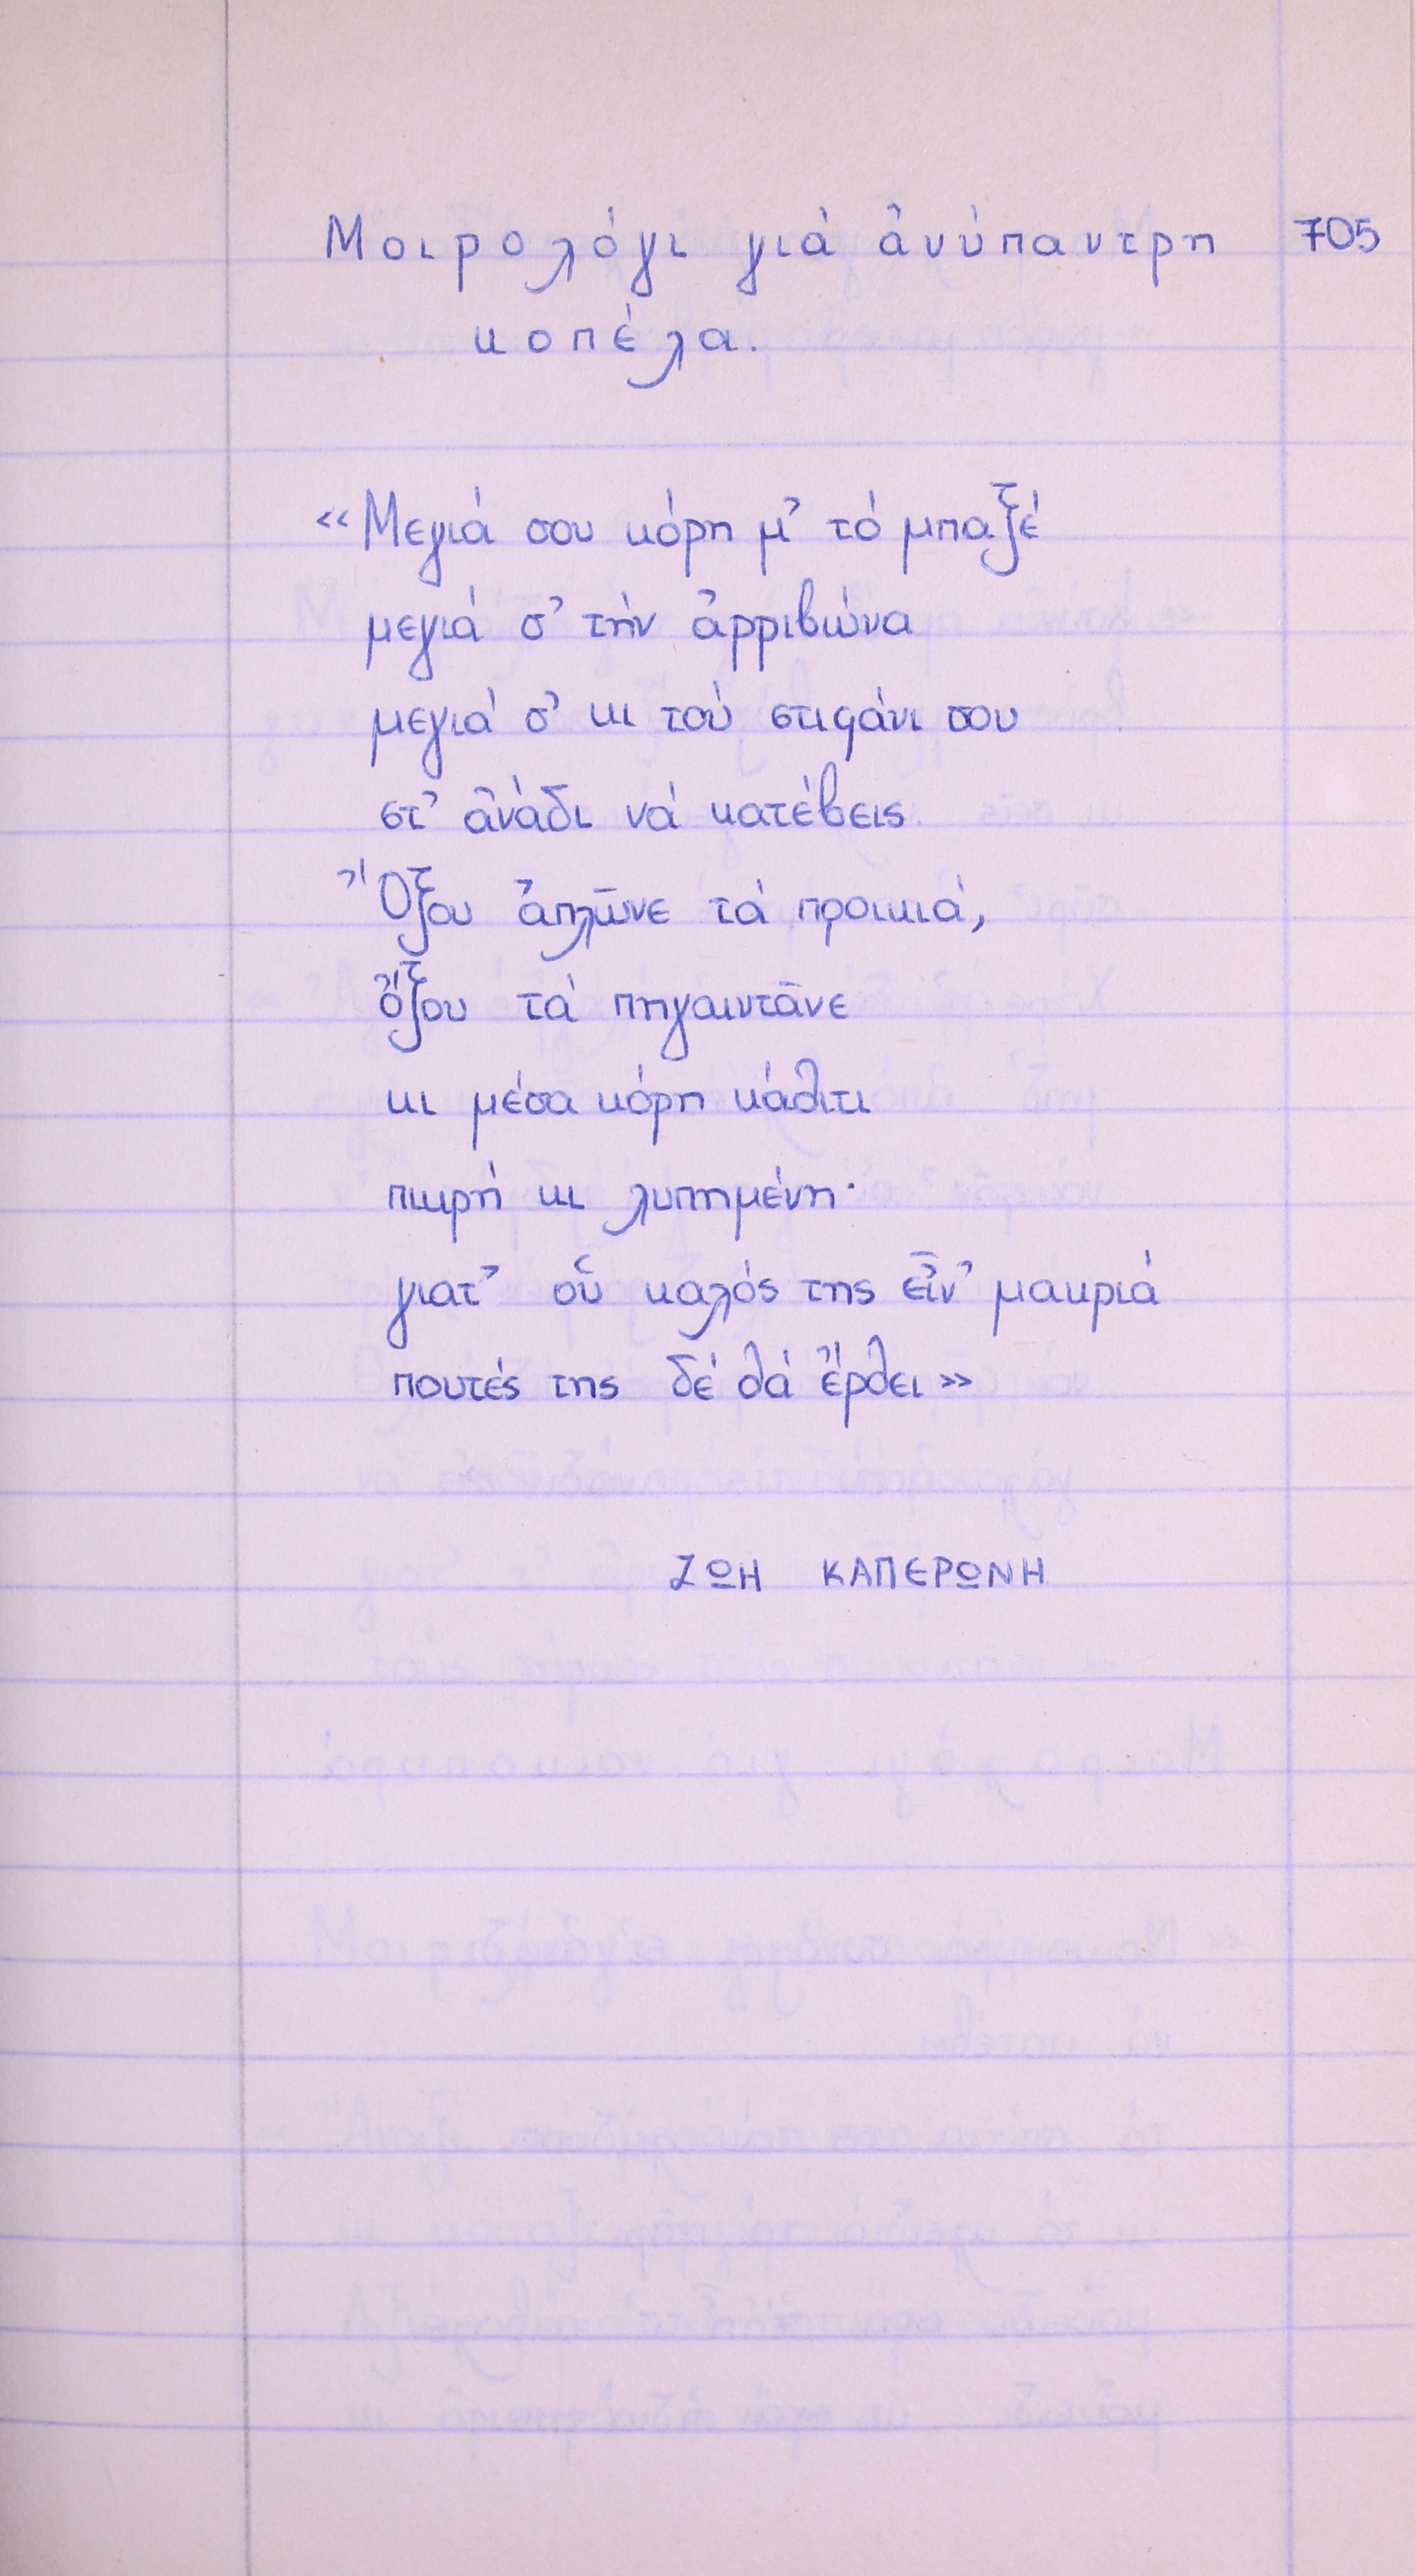 Μοιρολόγι γιά ἀνύπαντρη 705
κοπέλα.
«Μεγιά σου κόρη μ' τό μπαξέ
μεγιά σ' τήν ἀρριβώνα
μεγιά σ' κι τού στιφάνι σου
στ' ἀνάδι νά κατέβεις
Ὄξου ἁπλῶνε τά προικιά,
ὄξου τά πηγαιντᾶνε
κι μέσα κόρη κάθιτι
πικρή κι λυπημένη·
γιατ' οὑ καλός της εἶν' μακριά
πουτές της δέ θά ἔρθει»
ΖΩΗ ΚΑΠΕΡΩΝΗ